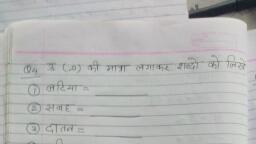 Q4 उ (ु) की मात्रा लगाकर शब्दों को लिखे
① नटिया =
② सबह =
③ दातन =